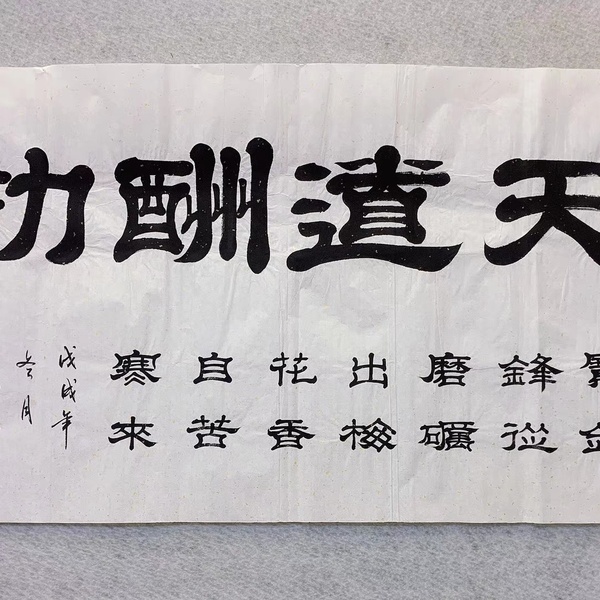 天道酬
鋒從
磨礪
出梅
花香
自苦
寒來
戊戌年
冬月